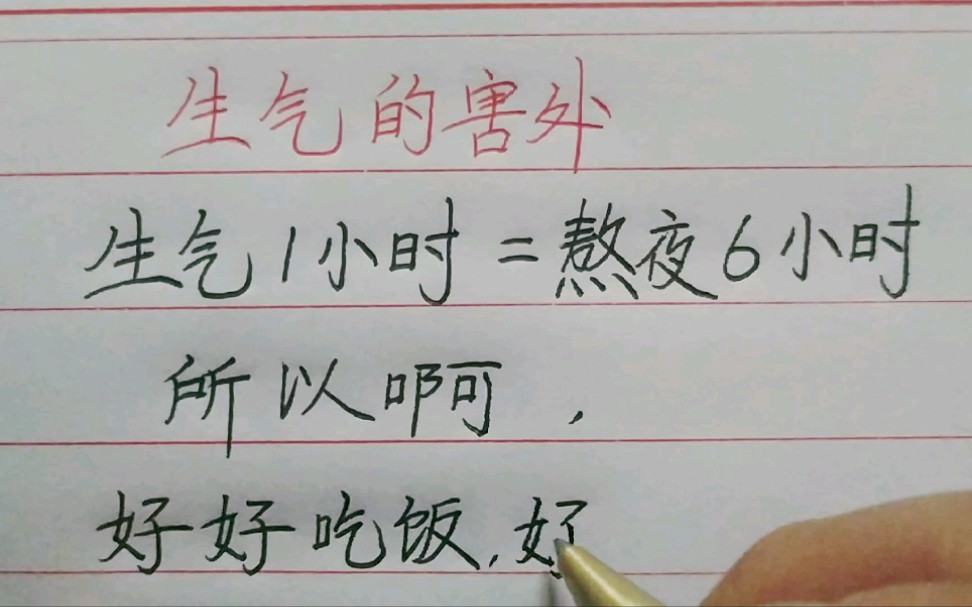 生气的害处
生气1小时=熬夜6小时
所以啊,
好好吃饭,好